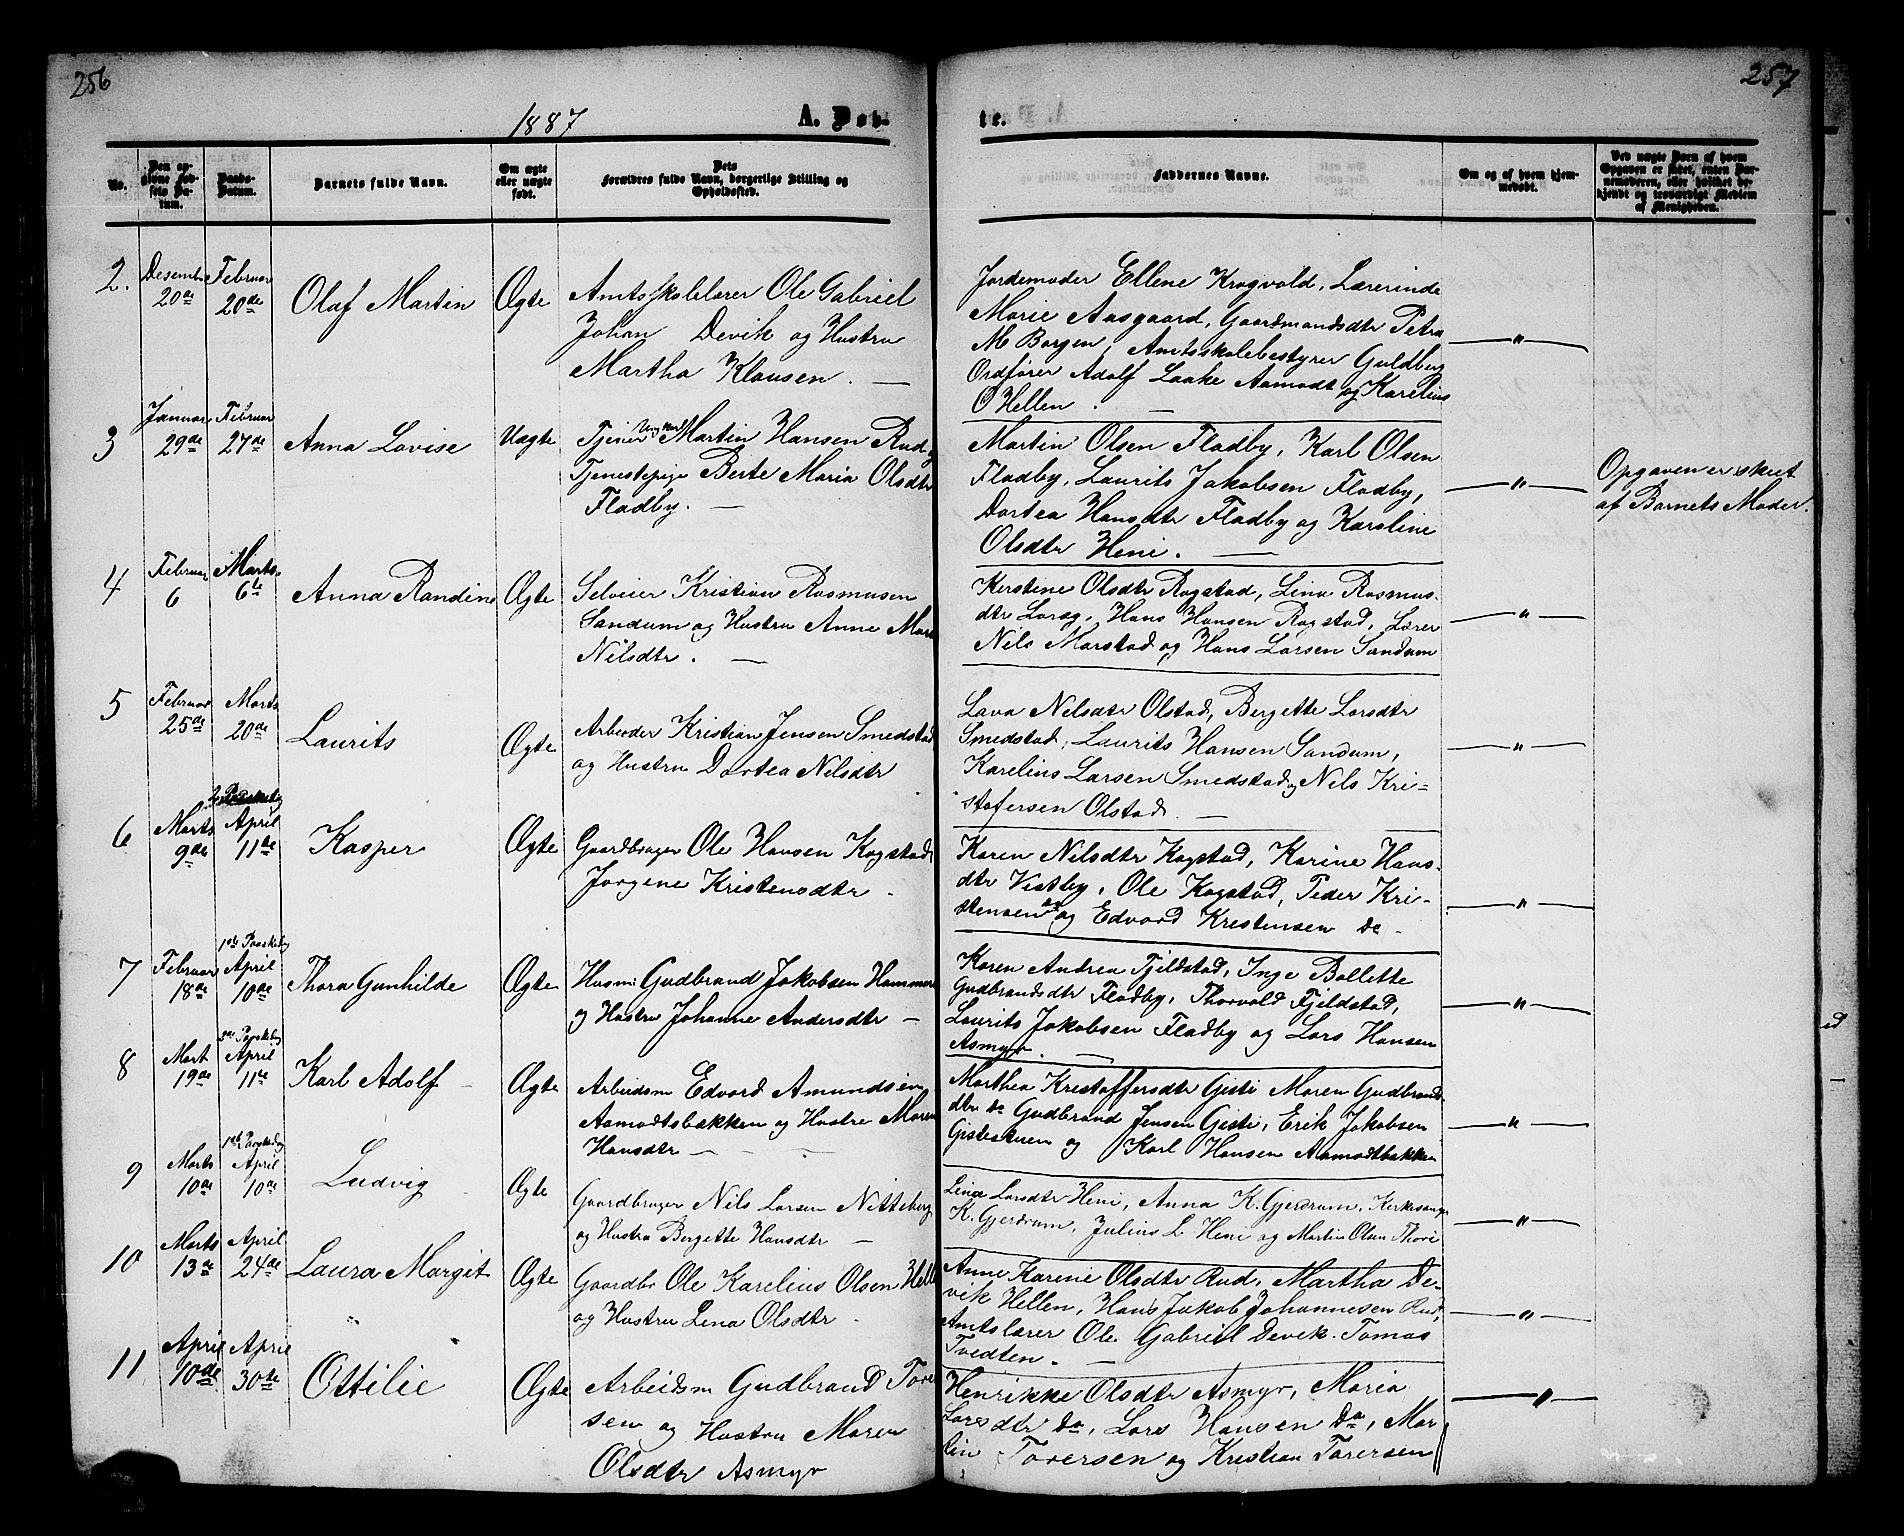 256
257
1887
A. Døb-
te.
No.
Den op-
givne Fød-
sels Da-
tum.
Daabs-
Datum.
Barnets fulde Navn.
Om ægte
eller uægte
født.
Dets
Forældres fulde Navn, borgerlige Stilling og
Opholdssted.
Faddernes Navne.
Om og af hvem hjem-
medøbt.
Ved uægte Born af hvem
Opgaven er skeet, enten Bar-
nemoderen, eller hvilket be-
kjendt og troværdigt Medlem
af Menigheden.
2.
Desember
20de
Februar
20de
Olaf Martin
Ægte
Amtsskolelærer Ole Gabriel
Johan Devik og Hustru
Martha Klausen. —
Jordemoder Ellene Krogvold, Lærerinde
Marie Aasgaard, Gaardmandsdtr Petra
M Borgen, Amtsskolebestyrer Guldberg
Ordfører Adolf Laake Aamodt og Karelius
O Hellen. —
— " —
3
Januar
29de
Februar
27de
Anna Lovise
Uægte
Tjener Ungkarl Martin Hansen Rud,
Tjenestepige Berte Maria Olsdtr
Fladby. —
Martin Olsen Fladby, Karl Olsen
Fladby, Laurits Jakobsen Fladby,
Dortea Hansdtr Fladby og Karoline
Olsdtr Heni. —
— " —
Opgaven er skeet
af Barnets Moder.
4
Februar
6
Marts
6te
Anna Randine
Ægte
Selveier Kristian Rasmusen
Sandum og Hustru Anne Mar
Nilsdtr. —
Kerstine Olsdtr Rogstad, Lina Rasmus-
dtr Loræg, Hans Hansen Rogstad, Lærer
Nils Marstad og Hans Larsen Sandum
— " —
5
Februar
25de
Marts
20de
Laurits
Ægte
Arbeider Kristian Jensen Smedstad
og Hustru Dortea Nilsdtr
Lava Nilsdtr Olstad, Bergette Larsdtr
Smedstad, Laurits Hansen Sandum,
Karelius Larsen Smedstad og Nils Kri-
stofersen Olstad. —
— " —
6
Marts
9de
April
11de
Kasper
Ægte
Gaardbruger Ole Hansen Kogstad
Jorgene Kristensdtr.
Karen Nilsdtr Kogstad, Karine Hans-
dtr Vestby, Ole Kogstad, Peder Kri-
stensen do og Edvard Kristensen do -
— " —
7
Februar
18de
1ste Paaskedag
April
10de
Thora Gunhilde
Ægte
Husm: Gudbrand Jakobsen Hammere
og Hustru Johanne Andersdtr —
Karen Andrea Fjeldstad, Inge Bollette
Gudbrandsdtr Fladby, Thorvald Fjeldstad,
Laurits Jakobsen Fladby og Lars Hansen
Asmyr. —
— " —
8
Mart
19de
2den Paaskedag
April
11te
Karl Adolf -
Ægte
Arbeidsm Edvard Amundsen
Aamodtsbakken og Hustru Maren
Hansdtr — — —
Marthea Kristoffersdtr Gisti Maren Gudbrands
dtr do Gudbrand Jensen Gisti, Erik Jakobsen
Gisteskuen og Karl Hansen Aamodtbakken
— " —
9
Marts
10de
1ste Paaskedag
April
10de
Ludvig
Ægte
Gaardbruger Nils Larsen Nitteberg
og Hustru Bergette Hansdtr —
Lina Larsdtr Heni, Anna K. Gjerdrum, Kirkesanger
K. Gjerdrum, Julius L Heni og Martin Olsen Thori
— " —
10
Marts
13de
April
24de
Laura Margit
Ægte
Gaardbr Ole Karelius Olsen Helle
og Hustru Lena Olsdtr.
Anne Karene Olsdtr Rud, Martha De-
vek Hellen, Hans Jakob Johannesen Rud,
Amtslærer Ole Gabriel Devek. Tomas
Tvedten. —
— " —
11
April
10de
April
30te
Ottilie
Ægte
Arbeidsm Gudbrand Tore
sen og Hustru Maren
Olsdtr Asmyr
Henrikke Olsdtr Asmyr, Maria
Larsdtr do, Lars Hansen Do, Mar
tin Torersen og Kristian Torersen
— " —